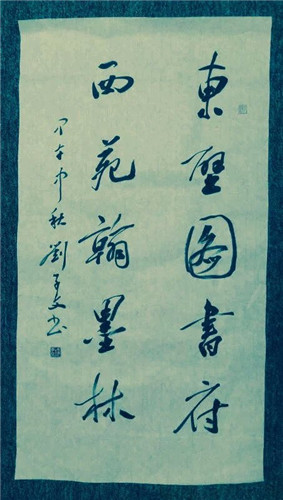 東壁圖書府
西苑翰墨林
甲午中秋劉子文書